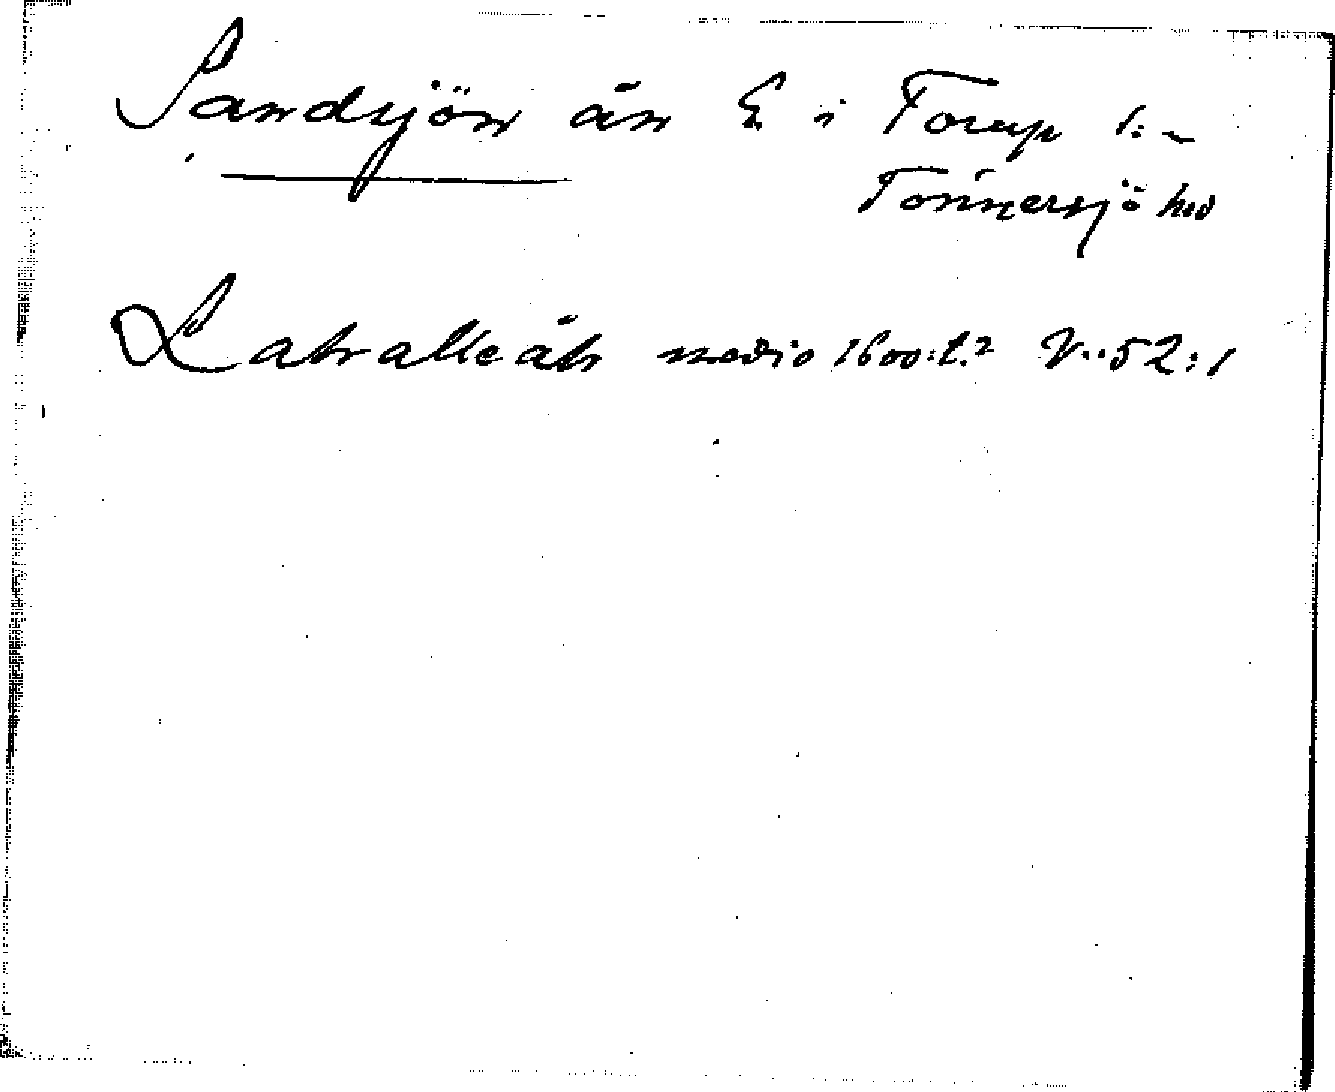 Sandsjön ån E i Torup s:n
Tönnersjö hd
medio 1600:t.? V:52:1